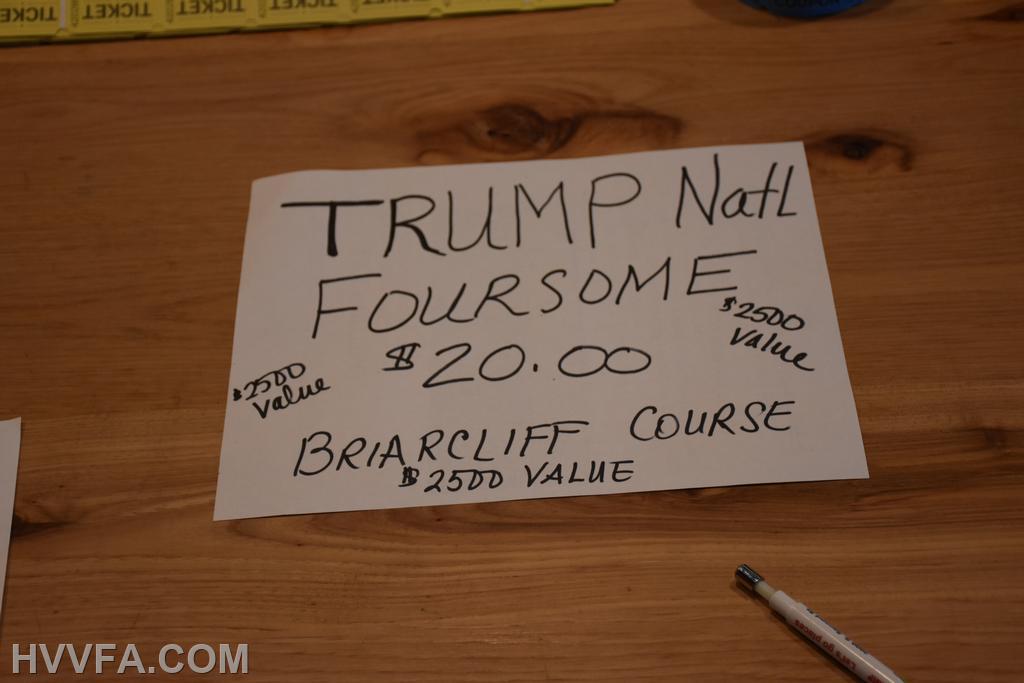 TICKET TICKET TICKET TICKET TICKET
COUPON
TRUMP Natl
FOURSOME
$20.00
$2500
value
$2500
value
BRIARCLIFF COURSE
$2500 VALUE
Let's go places
HVVFA.COM